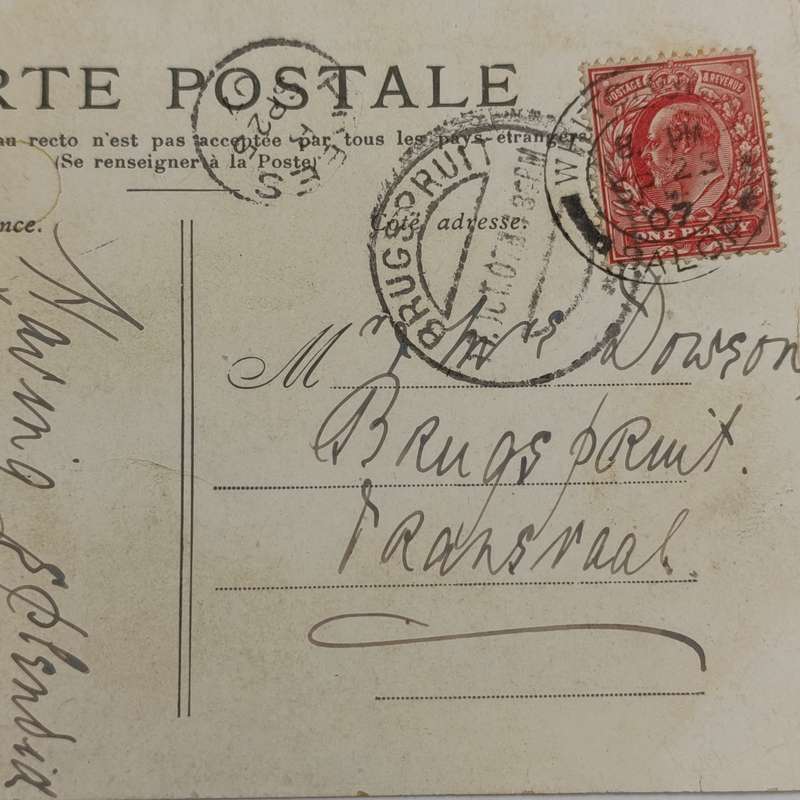 RTE POSTALE
au recto n'est pas acceptée par tous les pays étrangers
(Se renseigner à la Poste)
nce.
Côté adresse.
POSTAGE & REVENUE
ONE PENNY
8. PM
23
07
BRUGSPRUIT
OCT.07
M r & Mrs Dowson,
Brugspruit.
Transvaal.
Having Splendid